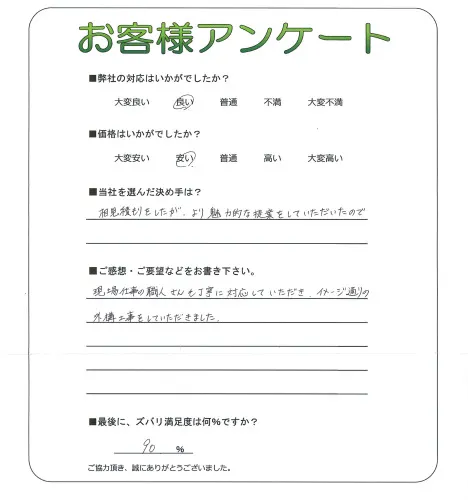 お客様アンケート
■弊社の対応はいかがでしたか？
大変良い 良い 普通 不満 大変不満
■価格はいかがでしたか？
大変安い 安い 普通 高い 大変高い
■当社を選んだ決め手は？
相見積もりをしたが、より魅力的な提案をしていただいたので
■ご感想・ご要望などをお書き下さい。
現場仕事の職人さんも丁寧に対応していただき、イメージ通りの
外構工事をしていただきました。
■最後に、ズバリ満足度は何％ですか？
90 ％
ご協力頂き、誠にありがとうございました。